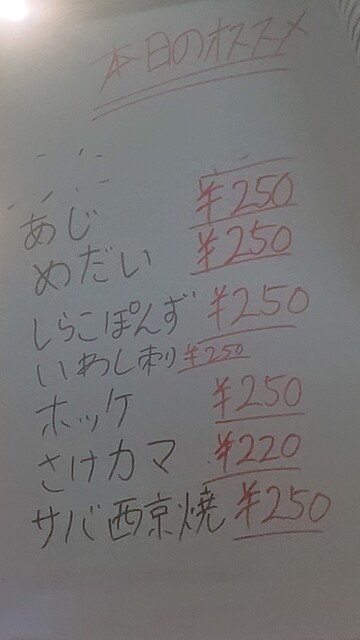 本日のオススメ
あじ ¥250
めだい ¥250
しらこぽんず ¥250
いわし刺り ¥250
ホッケ ¥250
さけカマ ¥220
サバ西京焼 ¥250